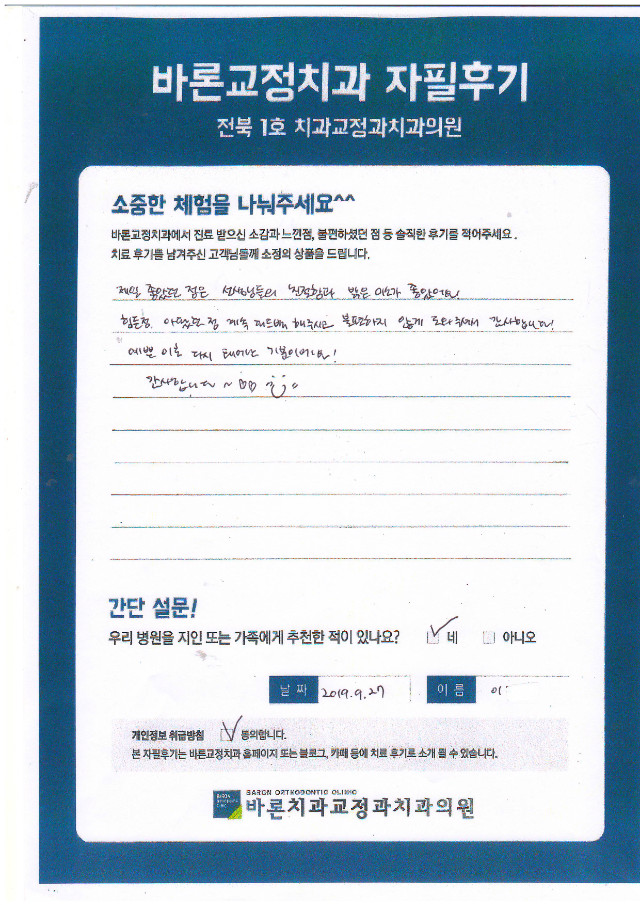 바론교정치과 자필후기
전북 1호 치과교정과치과의원
소중한 체험을 나눠주세요^^
바론교정치과에서 진료 받으신 소감과 느낀점, 불편하셨던 점 등 솔직한 후기를 적어주세요.
치료 후기를 남겨주신 고객님들께 소정의 상품을 드립니다.
제일 좋았던 점은 선생님들의 친절함과 밝은 미소가 좋았어요!
힘든점, 아팠던 점 계속 피드백 해주시고 불편하지 않게 도와주셔서 감사합니다!
예쁜 이로 다시 태어난 기분이에요!
감사합니다 ~
간단 설문!
우리 병원을 지인 또는 가족에게 추천한 적이 있나요? 네 아니오
날 짜 2019.9.27 이 름 이
개인정보 취급방침 동의합니다.
본 자필후기는 바론교정치과 홈페이지 또는 블로그, 카페 등에 치료 후기로 소개 될 수 있습니다.
BARON ORTHODONTIC CLINIC
바론치과교정과치과의원